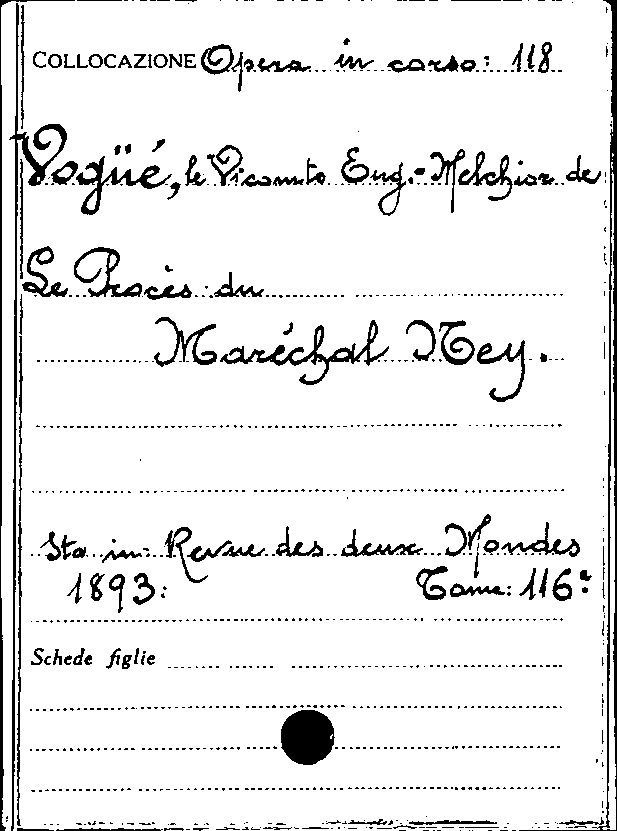 COLLOCAZIONE Opera in corso: 118
Vogüé, le Vicomte Eug.-Melchior de
Le Procès du
Maréchal Ney.
Sta in: Revue des deux Mondes
1893: Tome: 116e
Schede figlie